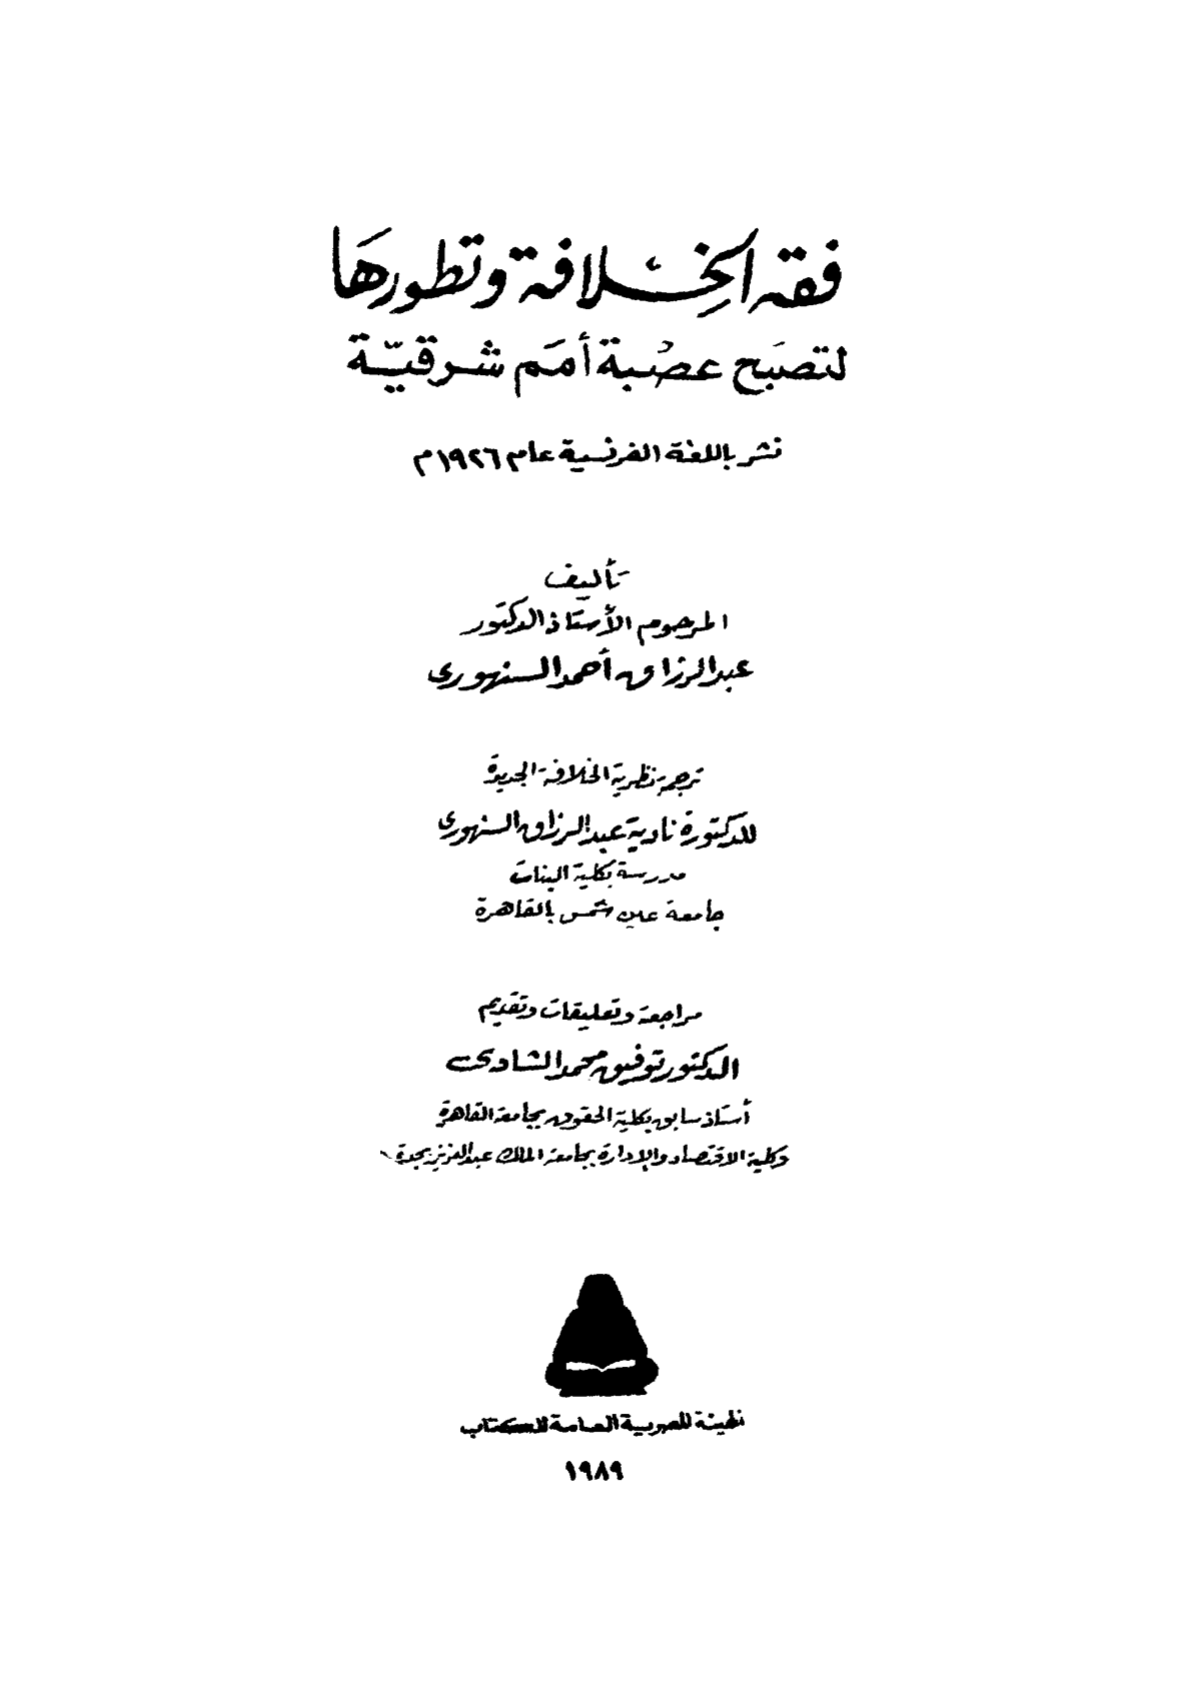 فقه الخِلافة وتطورهَا
لتصبَح عصُبة أمَم شرقيّة
نشر باللغة الفرنسية عام ١٩٢٦م
تأليف
المرحوم الأستاذ الدكتور
عبد الرزاق أحمد السنهوري
ترجمة نظرية الخلافة الجديدة
للدكتورة نادية عبد الرزاق السنهوري
مدرسة بكلية البنات
جامعة عين شمس بالقاهرة
مراجعة وتعليقات وتقديم
الدكتور توفيق محمد الشاوي
أستاذ سابق بكلية الحقوق بجامعة القاهرة
وكلية الاقتصاد والإدارة بجامعة الملك عبد العزيز بجدة
الهيئة المصرية العامة للكتاب
١٩٨٩